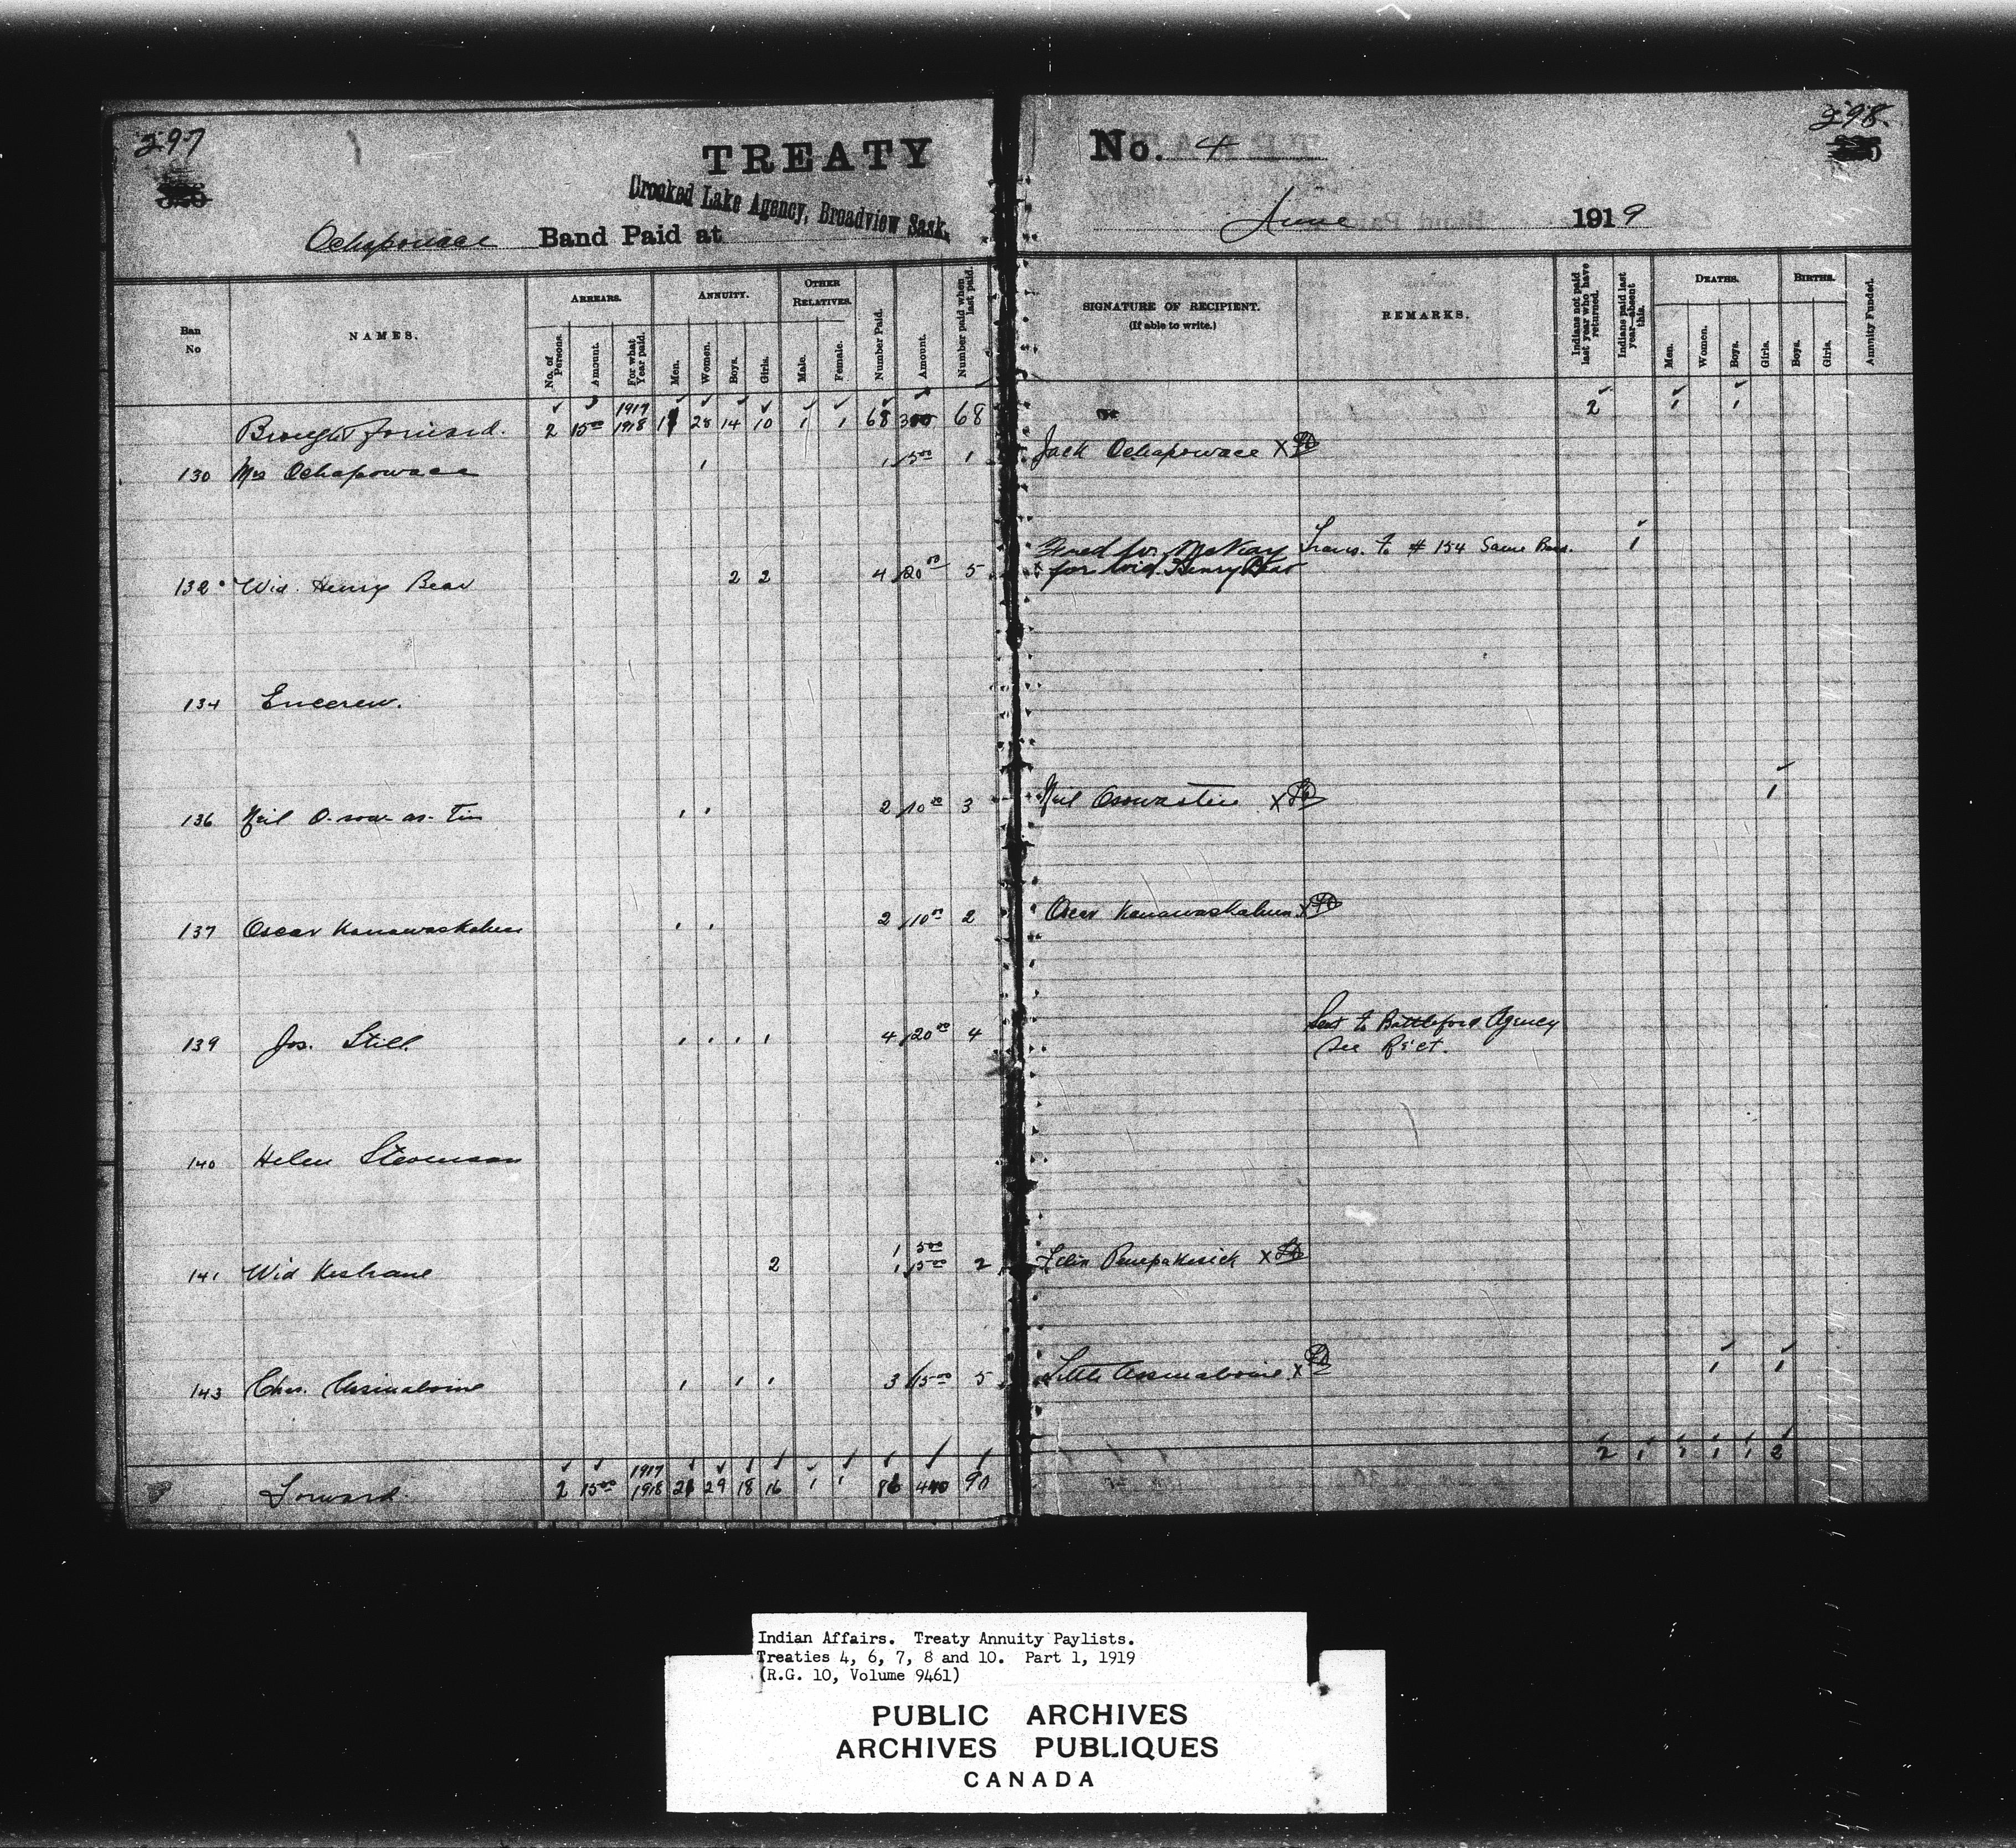 297
TREATY
Crooked Lake Agency, Broadview Sask.
Ochapowace Band Paid at
Ban No
NAMES.
ARREARS.
No. of Persons.
Amount.
For what Year paid.
ANNUITY.
Men.
Women.
Boys.
Girls.
OTHER RELATIVES.
Male.
Female.
Number Paid.
Amount.
Number paid when last paid.
Brought forward. 2 15 00 1917 1918 28 14 10 1 1 68 68
130 Mrs Ochapowace 1 1 5 00 1
132 Wid. Henry Bear 2 2 4 20 00 5
134
136 Neil O-sow-as-Tin 1 1 2 10 00 3
137 Oscar Kanawaskahum 1 1 2 10 00 2
139 Jos. Still 1 1 1 1 4 20 00 4
140 Helen Stevenson
141 Wid Keshane 2 1 5 00
1 5 00 2
143 Chas. Assinaboine 1 1 1 3 15 00 5
Forward. 2 15 00 1917 1918 29 18 16 1 1 86 90
298.
No. 4
June 1919
SIGNATURE OF RECIPIENT.
(If able to write.)
REMARKS.
Indians not paid last year who have returned.
Indians paid last year—absent this.
DEATHS.
Men.
Women.
Boys.
Girls.
BIRTHS.
Boys.
Girls.
Annuity Funded.
2 1 1
Jack Ochapowace X
McKay Trans. to # 154 Same Band. 1
for Wid. Henry Bear
Neil Osowastin X 1
Oscar Kanawaskahum X
Sent to Battleford Agency
See Rect.
X
Little Assinaboine X 1 1
2 1 1 1 1 2
Indian Affairs. Treaty Annuity Paylists.
Treaties 4, 6, 7, 8 and 10. Part 1, 1919
(R.G. 10, Volume 9461)
PUBLIC ARCHIVES
ARCHIVES PUBLIQUES
CANADA